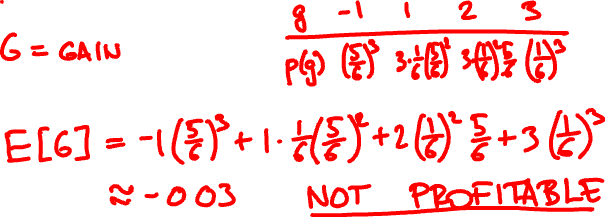 g -1 1 2 3
G = GAIN p(g) (5/6)³ 3·1/6(5/6)² 3(1/6)²5/6 (1/6)³
E[G] = -1(5/6)³ + 1·1/6(5/6)² + 2(1/6)² 5/6 + 3(1/6)³
≈ -0 03 NOT PROFITABLE